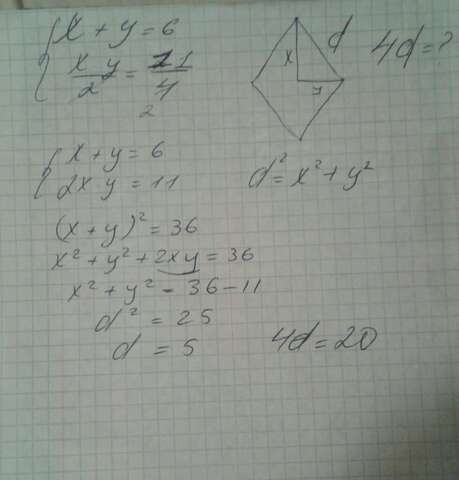 x + y = 6
xy/2 = 11/4
2
x
y
d
4d = ?
x + y = 6
2xy = 11
d² = x² + y²
(x + y)² = 36
x² + y² + 2xy = 36
x² + y² - 36 - 11
d² = 25
d = 5
4d = 20